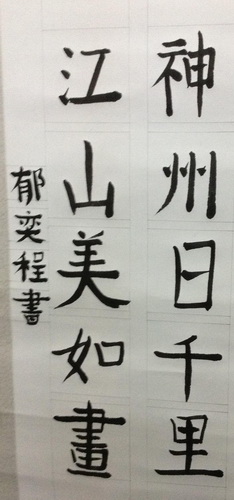 神州日千里
江山美如畫
郁奕程書